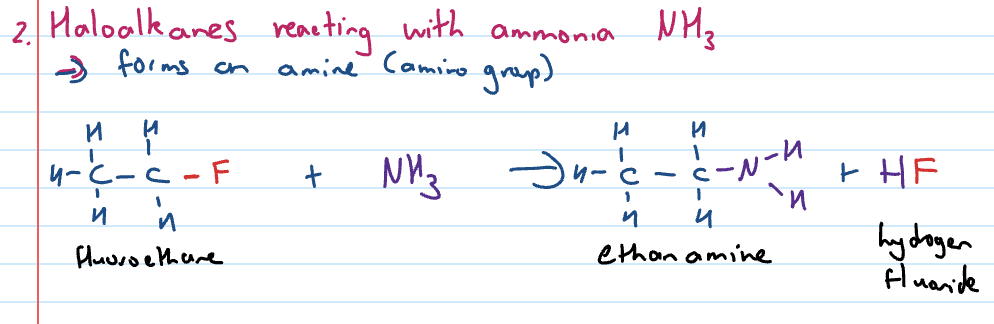 2. Haloalkanes reacting with ammonia NH3
→ forms an amine (amino group)
H H
H-C-C-F + NH3 → H-C-C-N-H + HF
H H H
H H
H H
fluoroethane ethanamine hydrogen
fluoride